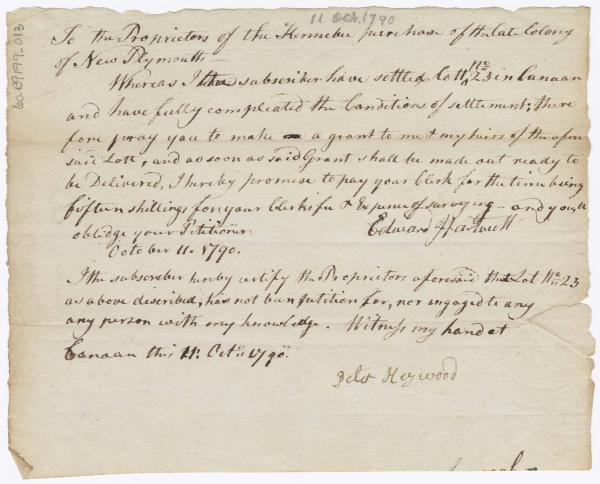 11 Oct. 1790
To the Proprietors of the Kennebec purchase of the late Colony
of New Plymouth—
Whereas I the subscriber have settled lott No 23 in Canaan
and have fully compleated the Conditions of settlement; there
fore pray you to make a grant to me & my heirs of the afore
said Lott, and as soon as said Grant shall be made out ready to
be Delivered, I hereby promise to pay your Clerk for the time being
fifteen shillings for your Clerks fee & Expence of surveying— and you'll
oblidge your Petitioner
Edward Hartwell
October 11. 1790.
I the subscriber hereby certify the Proprietors aforesaid that Lot No 23
as above discribed, has not been petition for, nor ingaged to any
any person with my knowledge. Witness my hand at
Canaan this 11. Oct. 1790.
Peter Heywood